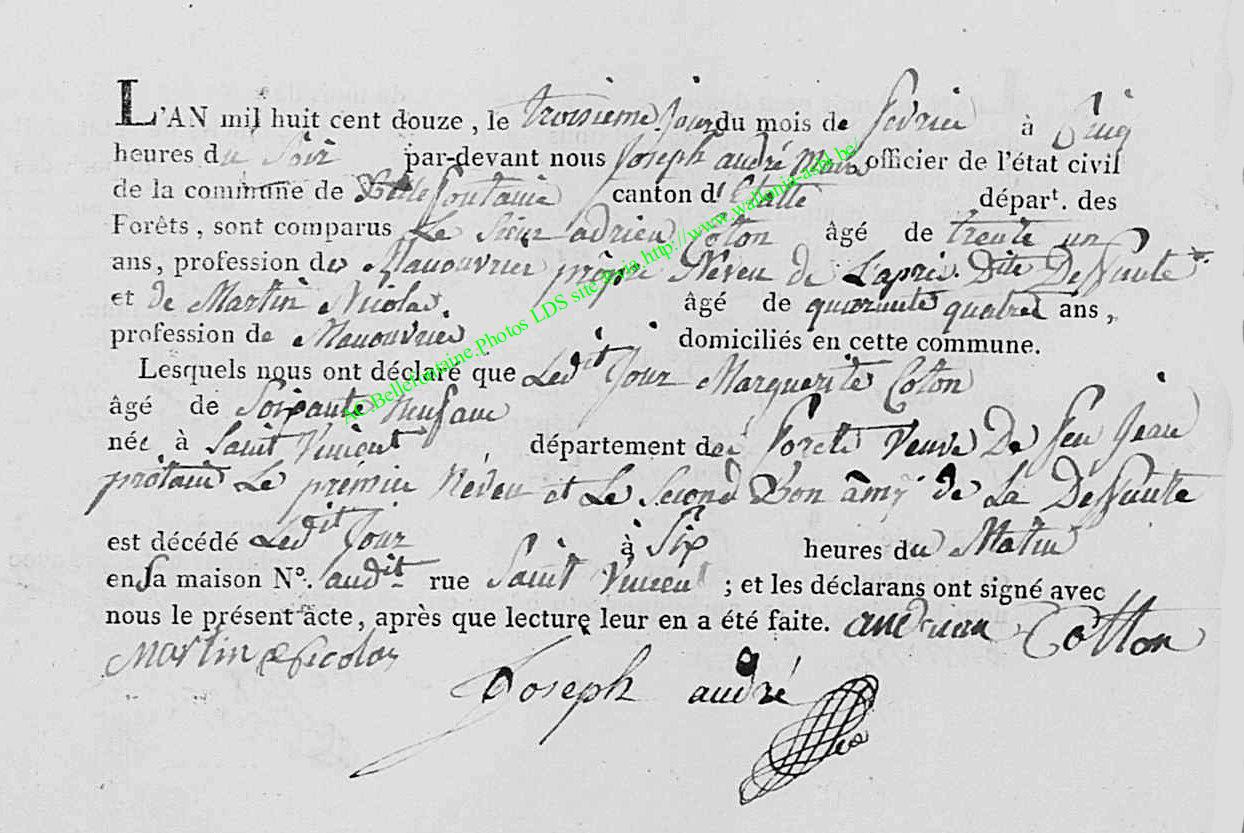 L'AN mil huit cent douze, le troisieme jour du mois de fevrier à Cinq
heures du Soir par-devant nous Joseph andré Maire officier de l'état civil
de la commune de Bellefontaine canton d'Etalle départ. des
Forêts, sont comparus Le Sieur adrien Coton âgé de trente un
ans, profession de Manouvrier propre Neveu de L'apris. Dite Deffunte
et de Martin Nicolas. âgé de quarante quatre ans,
profession de Manouvrier domiciliés en cette commune.
Lesquels nous ont déclaré que Ledit Jour Marguerite Coton
âgé de Soixante Neuf ans
née à Saint Vincent, département des Forets Veuve De feu Jean
protain Le premier Neveu et Le Second Bon amy de La Deffunte
est décédé Ledit Jour à Six heures du Matin
en Sa maison N°. audit rue Saint Vincent ; et les déclarans ont signé avec
nous le présent acte, après que lecture leur en a été faite. andrian Cotton
Martin Nicolas
Joseph andré
AC.Bellefontaine.Photos LDS site via http://www.wallonia-asbl.be/